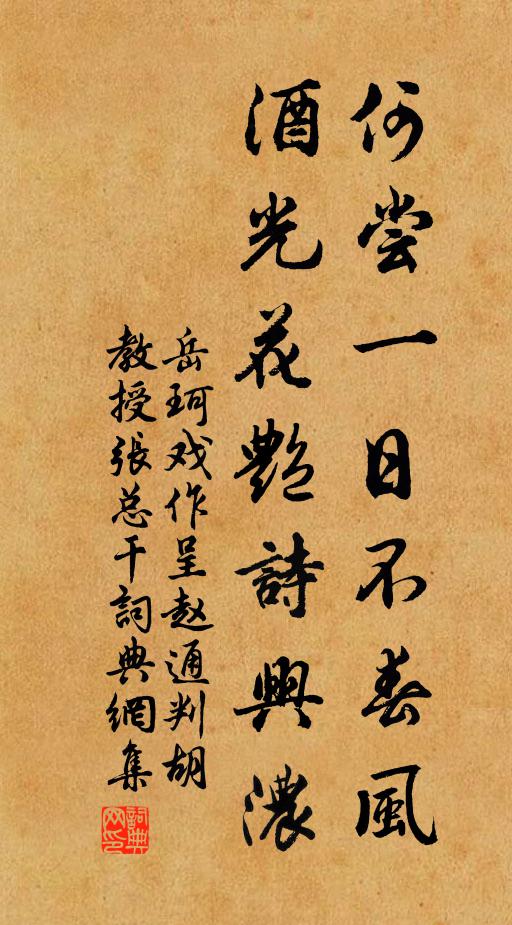 何尝一日不春風
酒光花艷詩興濃
岳珂戏作呈赵通判胡
教授張总干詞典網集
詞典网印